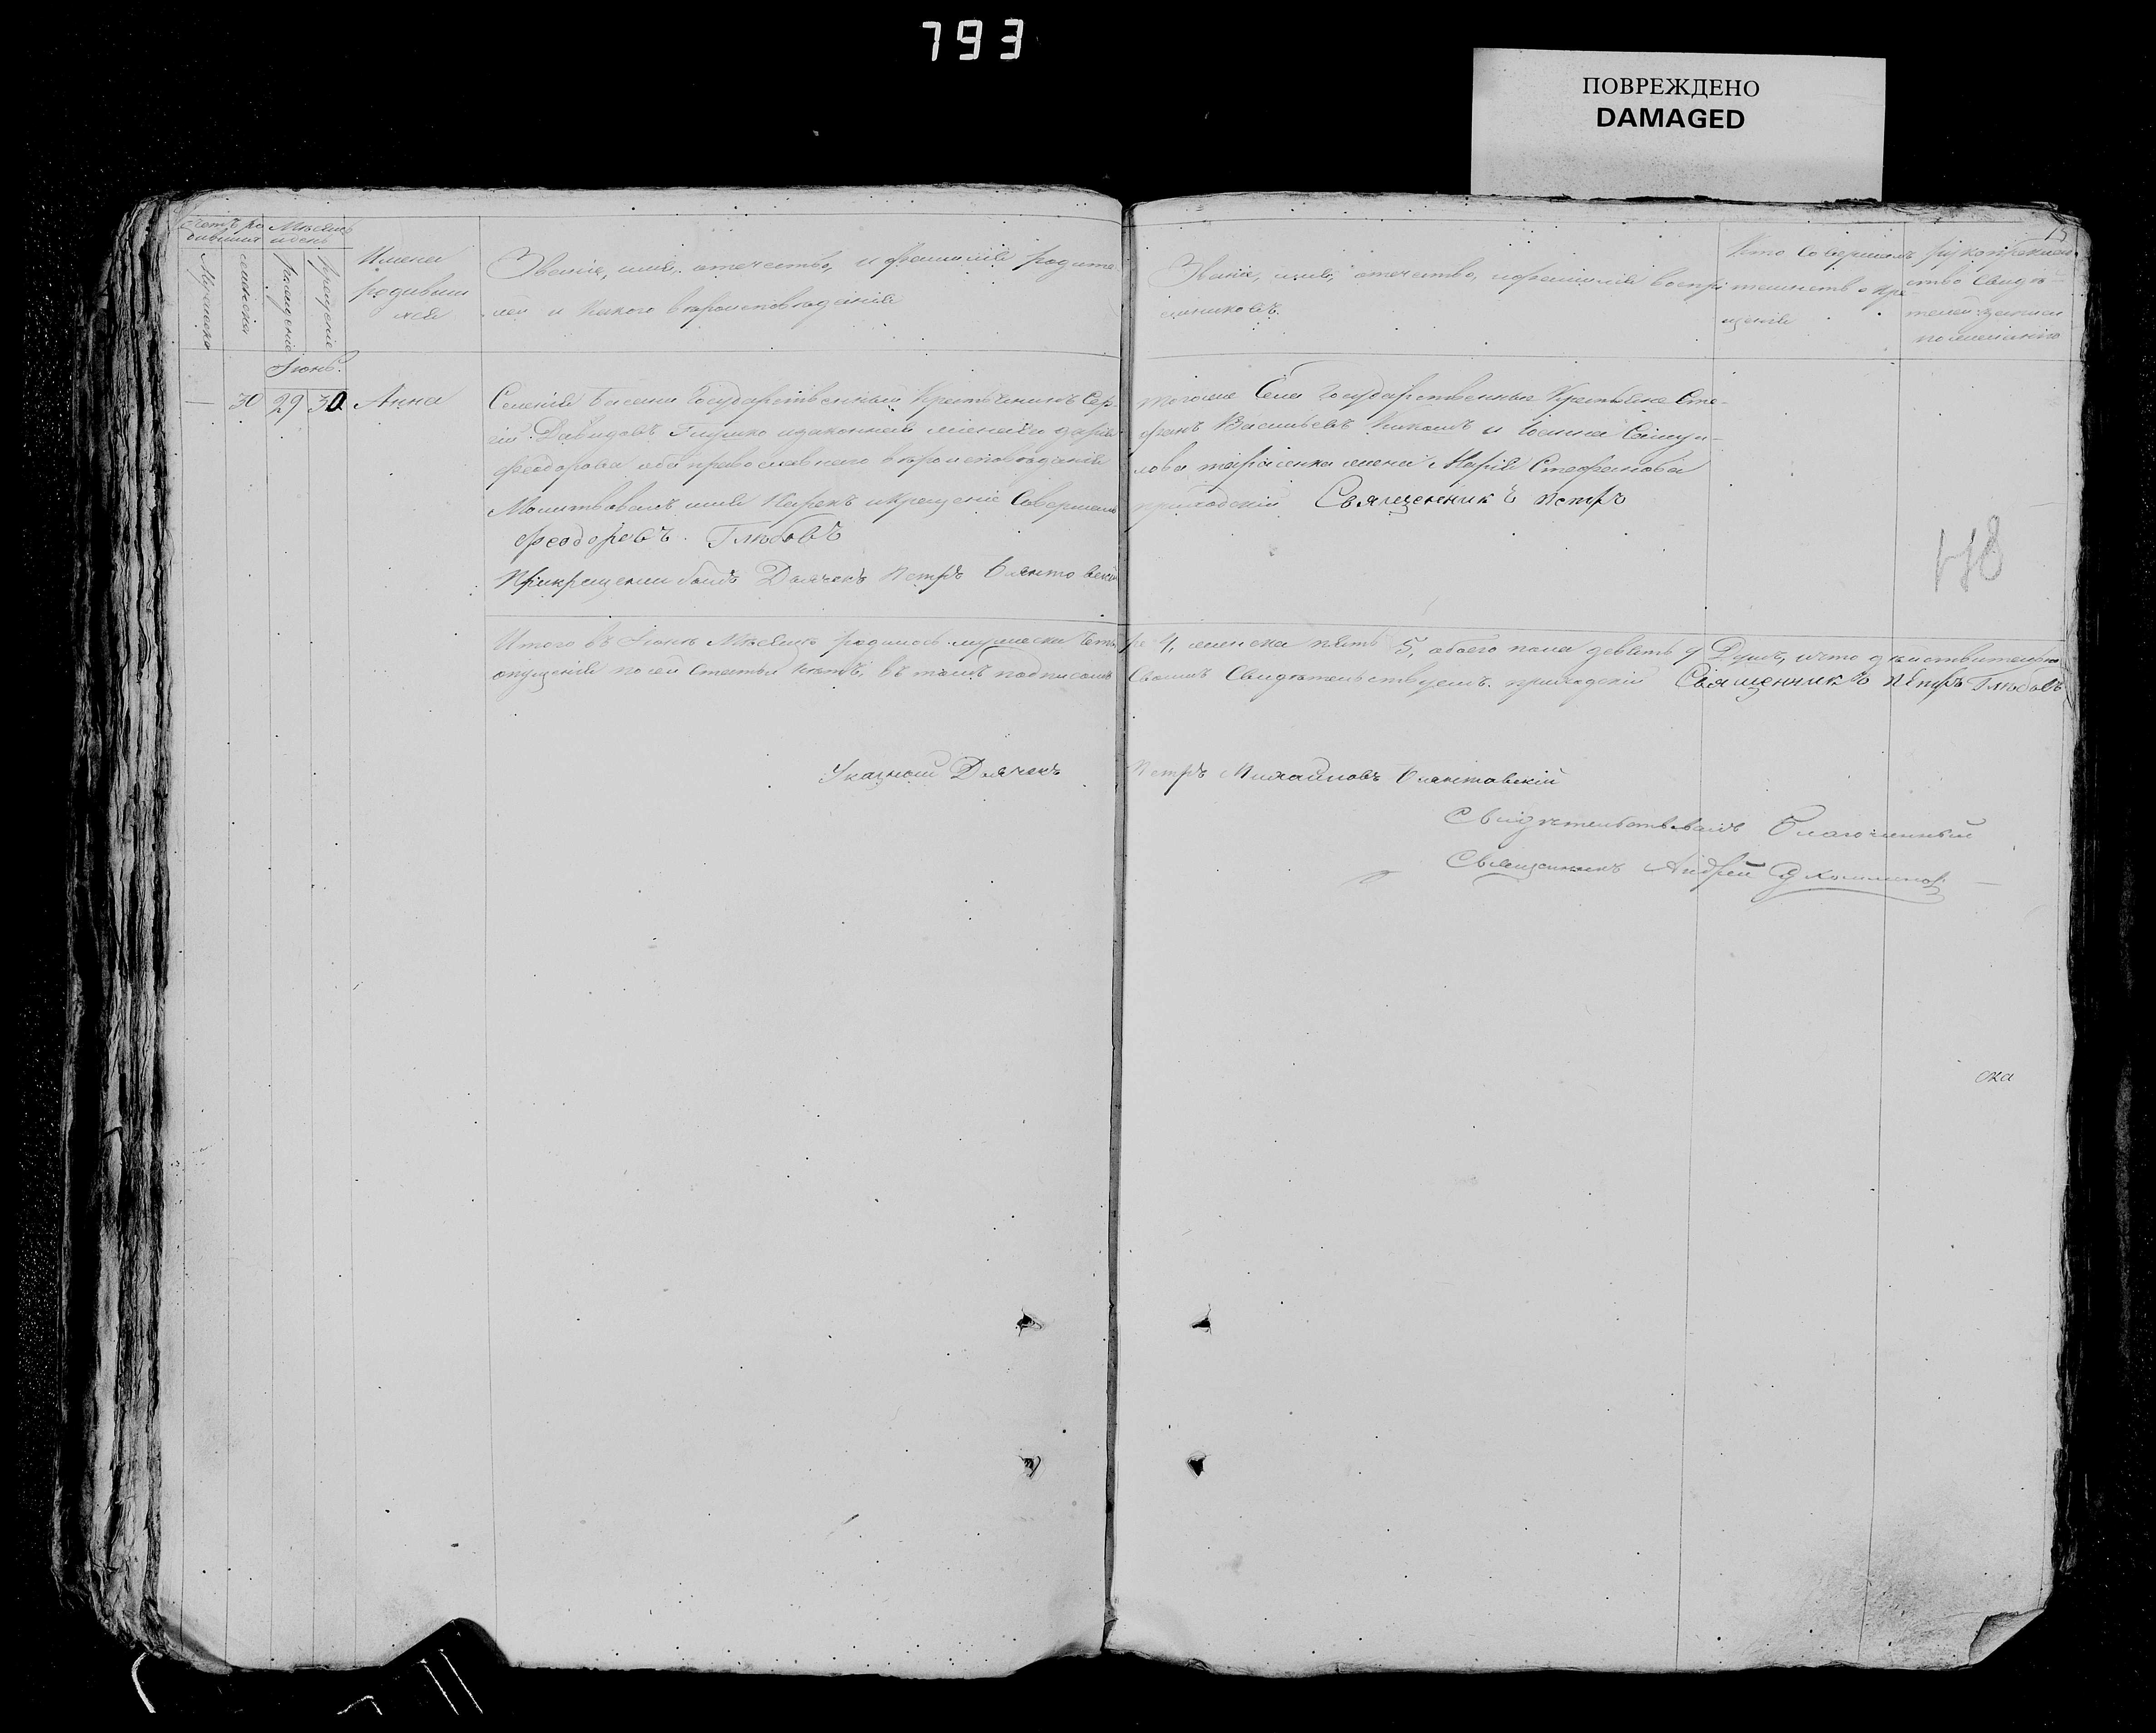 793
ПОВРЕЖДЕНО
DAMAGED
15
Счетъ ро Мѣсяцъ
дившихся и день
Мужеска
женска
рожденіе
крещеніе
Имена
родивши
хся
Званіе, имя, отечество, и фамилія родите
лей и какого вѣроисповѣданія
Званіе, имя, отечество, и фамилія воспрі
емниковъ.
Кто совершалъ
таинство кре
щенія
Рукоприклад
ство свидѣ
телей записи
по желанію
Іюнь.
— 30 29 30 Анна
Селенія Государственный Крестьянинъ Сер-
гій Давидовъ Глушко и законная жена его Дарія
Феодорова оба православнаго вѣроисповѣданія
Молитвовалъ имя нарекъ и крещеніе совершалъ
Феодоровъ. Глѣбовъ
При крещеніи былъ Дьячекъ Петръ
тогоже Села Государственные Крестьяне Сте-
фанъ Васильевъ и Іоанна Самуи-
лова жена Марія Стефанова
приходскій Священникъ Петръ
148
Итого въ Іюнѣ Мѣсяцѣ родилось мужеска четы
ре 4, женска пять 5, обоего пола девять 9 Душъ, и что дѣйствительно
опущенія по сей статьи нѣтъ, въ томъ подписомъ
Своимъ Свидѣтельствуемъ. приходскій Священникъ Петръ Глѣбовъ
Указной Дьячекъ
Петръ Михайловъ
Свидѣтельствовалъ Благочинный
Священникъ Андрей